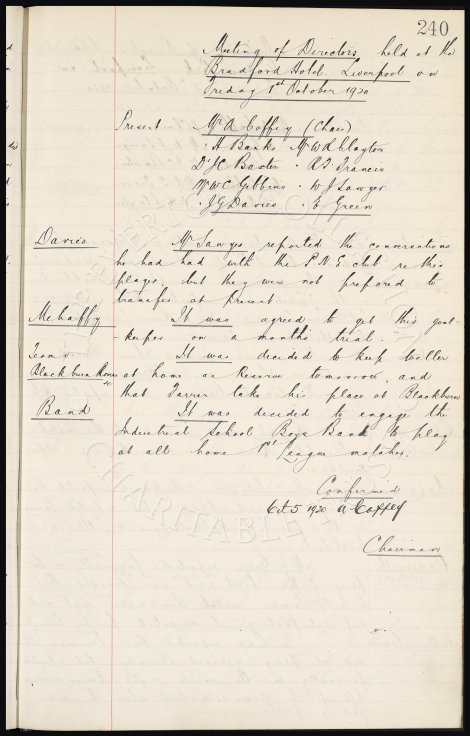 240
Meeting of Directors held at the
Bradford Hotel Liverpool on
Friday 1st October 1920
Present Mr A Coffey (Chair)
" A Banks Mr W R Clayton
Dr J C Baxter " A T Francis
Mr W C Gibbins " W J Sawyer
" J G Davies " E Green
Davies Mr Sawyer reported the conversations
he had had with the P.N.E. club re this
player but they were not prepared to
transfer at present.
Mehaffy It was agreed to get this goal-
keeper on a month's trial.
Team v It was decided to keep Weller
Blackburn Rovers at home as Reserve tomorrow, and
that Tarrer take his place at Blackburn
Band It was decided to engage the
Industrial School Boys Band to play
at all home 1st League matches.
Confirmed
Oct 5 1920 A Coffey
Chairman
CHARITABLE